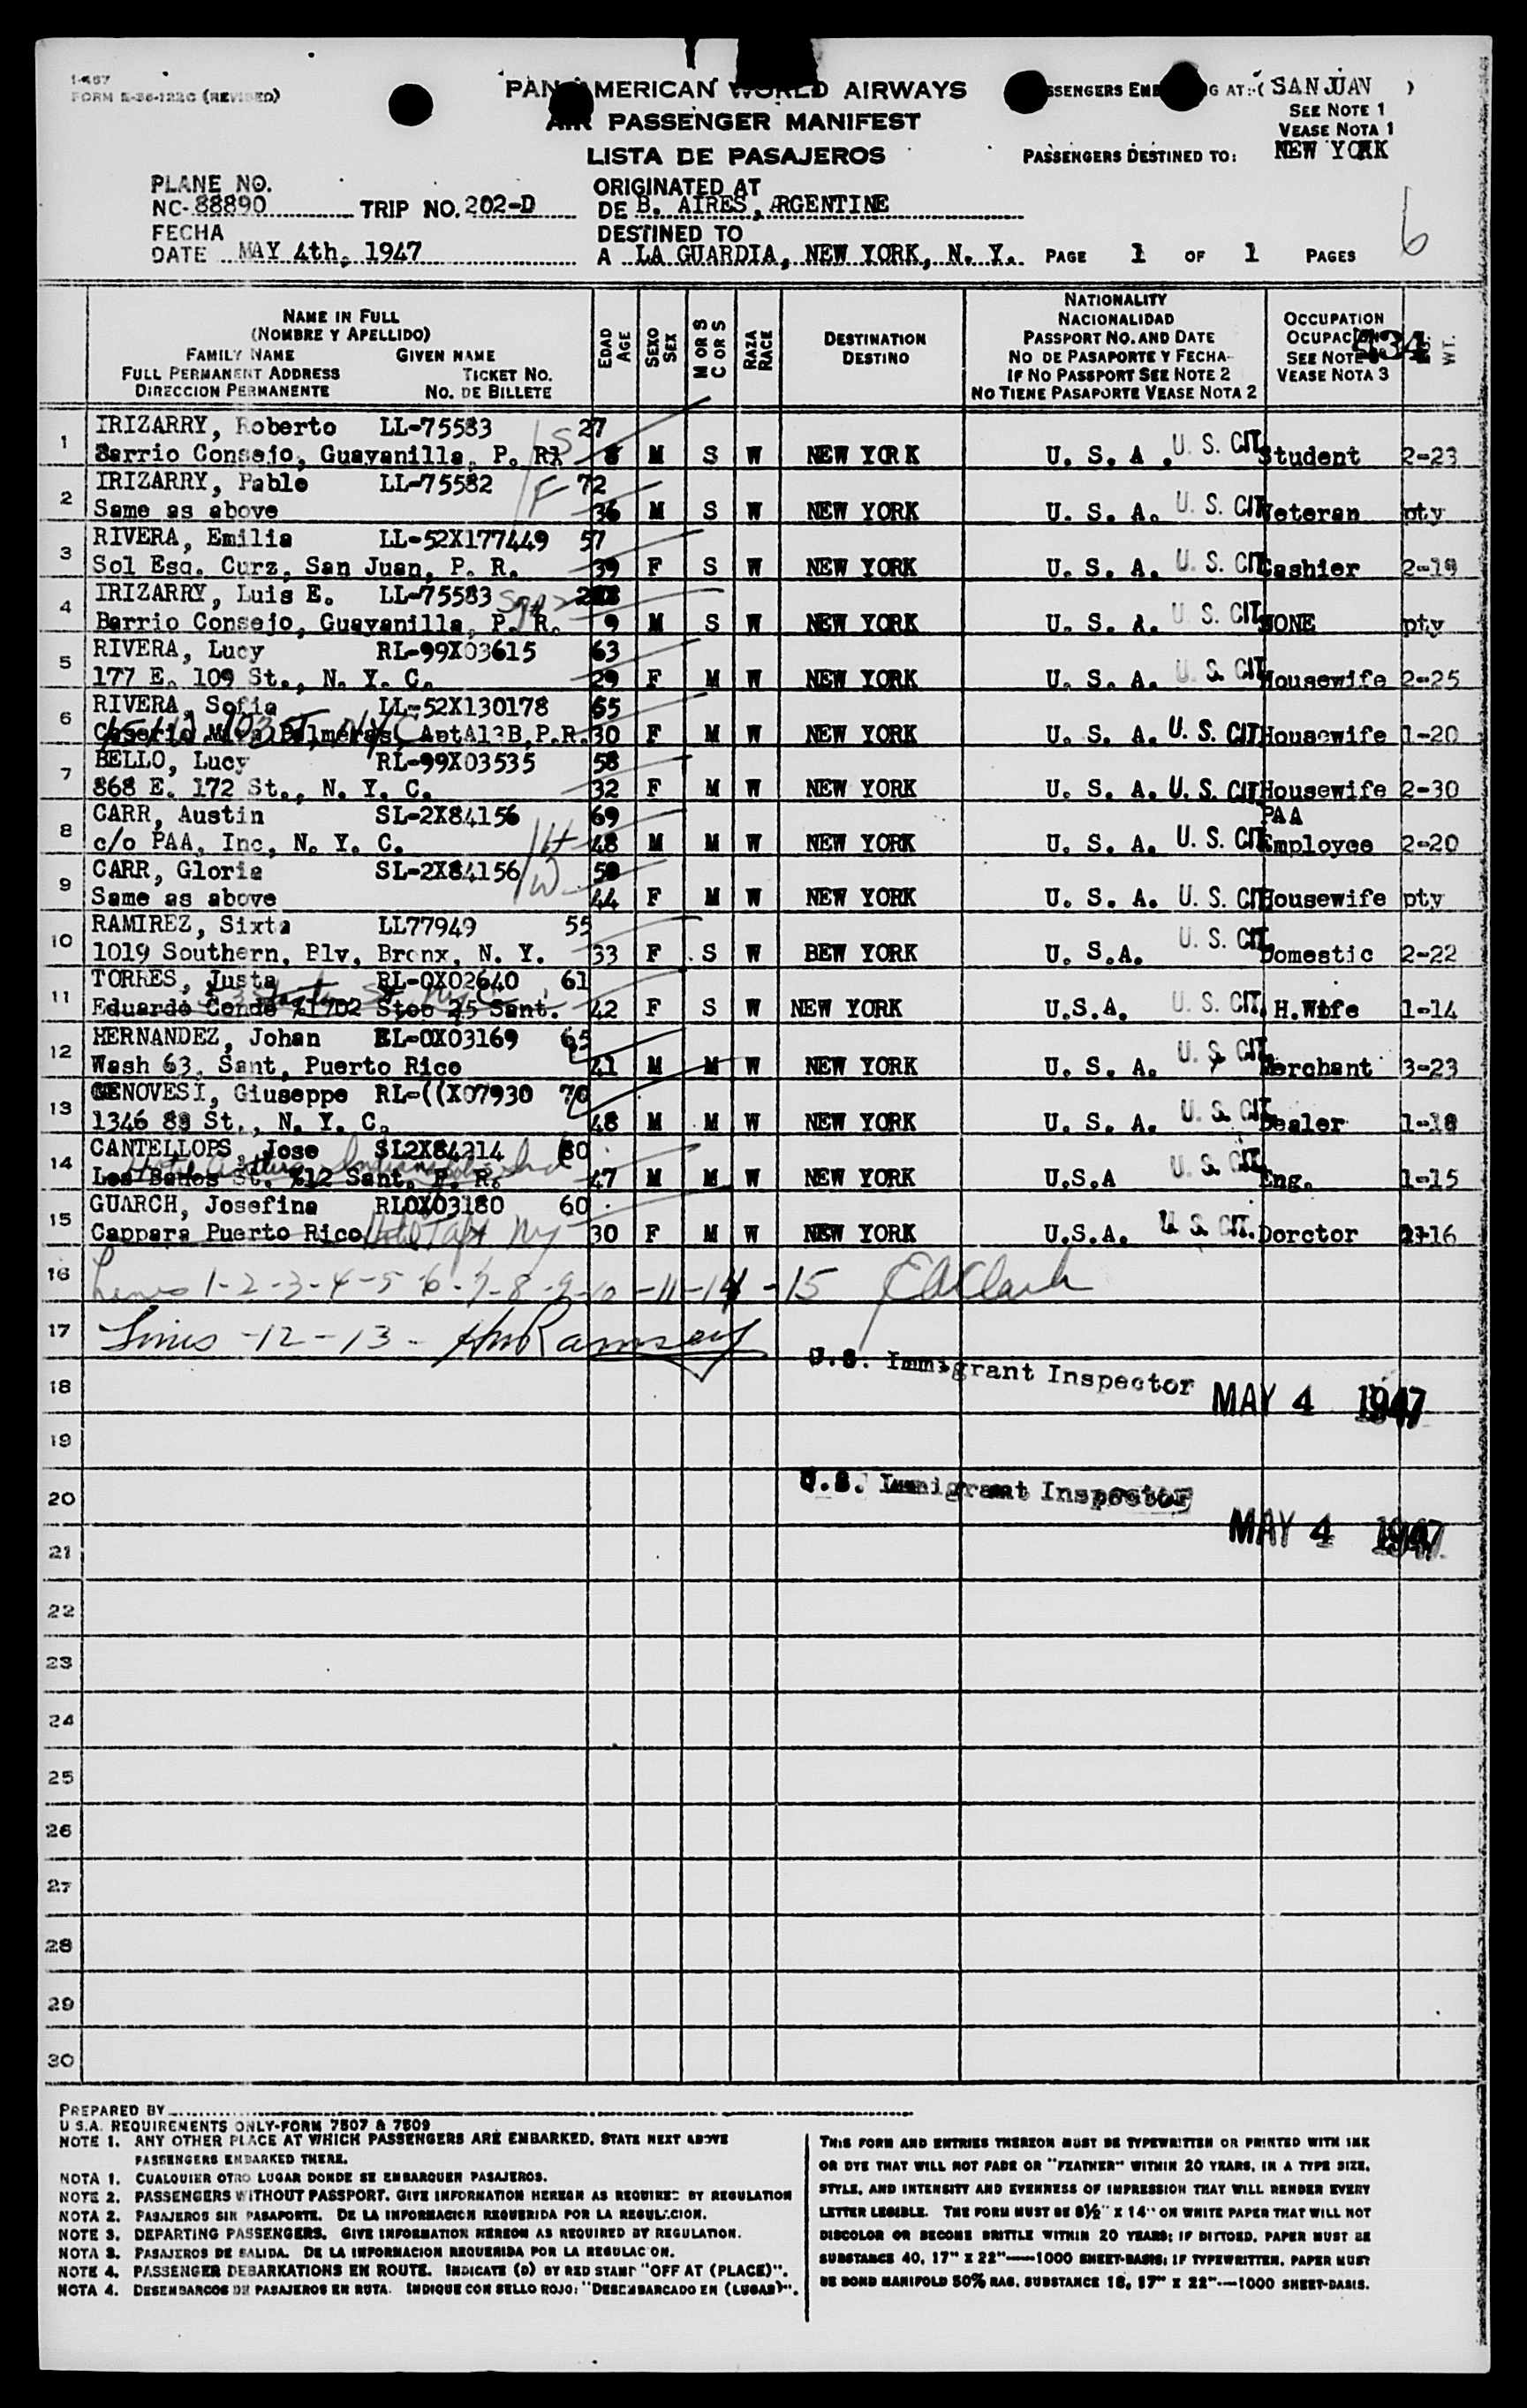 1-467
FORM E-36-122C (REVISED)
PAN AMERICAN WORLD AIRWAYS
AIR PASSENGER MANIFEST
LISTA DE PASAJEROS
AT:-( SAN JUAN )
SEE NOTE 1
VEASE NOTA 1
PASSENGERS DESTINED TO: NEW YORK
PLANE NO.
NC-88890 TRIP NO. 202-D
ORIGINATED AT
DE B. AIRES, ARGENTINE
FECHA
DATE MAY 4th, 1947
DESTINED TO
A LA GUARDIA, NEW YORK, N. Y. PAGE 1 OF 1 PAGES
6
NAME IN FULL
(NOMBRE Y APELLIDO)
FAMILY NAME GIVEN NAME
FULL PERMANENT ADDRESS TICKET NO.
DIRECCION PERMANENTE NO. DE BILLETE
EDAD AGE
SEXO SEX
M OR S C OR S
RAZA RACE
DESTINATION
DESTINO
NATIONALITY
NACIONALIDAD
PASSPORT NO. AND DATE
NO DE PASAPORTE Y FECHA-
IF NO PASSPORT SEE NOTE 2
NO TIENE PASAPORTE VEASE NOTA 2
OCCUPATION
SEE NOTE
VEASE NOTA 3
534
WT.
IRIZARRY, Roberto LL-75583 27
1 Barrio Consejo, Guayanilla, P. R. S 8 M S W NEW YORK U. S. A. U. S. CIT. Student 2-23
IRIZARRY, Pablo LL-75582 72
2 Same as above F 36 M S W NEW YORK U. S. A. U. S. CIT. Veteran pty
RIVERA, Emilia LL-52X177449 57
3 Sol Esq. Curz, San Juan, P. R. 39 F S W NEW YORK U. S. A. U. S. CIT. Cashier 2-19
IRIZARRY, Luis E. LL-75583
4 Barrio Consejo, Guayanilla, P. R. 9 M S W NEW YORK U. S. A. U. S. CIT. NONE pty
RIVERA, Lucy RL-99X03615 63
5 177 E. 109 St., N. Y. C. 29 F M W NEW YORK U. S. A. U. S. CIT. Housewife 2-25
RIVERA, Sofia LL-52X130178 55
6 Palmeras, Apt A13B, P.R. 30 F M W NEW YORK U. S. A. U. S. CIT Housewife 1-20
BELLO, Lucy RL-99X03535 58
7 868 E. 172 St., N. Y. C. 32 F M W NEW YORK U. S. A. U. S. CIT Housewife 2-30
CARR, Austin SL-2X84156 69 PAA
8 c/o PAA, Inc, N. Y. C. H 48 M M W NEW YORK U. S. A. U. S. CIT Employee 2-20
CARR, Gloria SL-2X84156 50
9 Same as above W 44 F M W NEW YORK U. S. A. U. S. CIT Housewife pty
RAMIREZ, Sixta LL77949 55
10 1019 Southern, Blv, Bronx, N. Y. 33 F S W BEW YORK U. S.A. U. S. CIT Domestic 2-22
TORRES, Justa RL-0X02640 61
11 Eduardo Conde %1702 Stop 25 Sant. 42 F S W NEW YORK U.S.A. U. S. CIT. H.Wife 1-14
HERNANDEZ, Johan RL-0X03169 65
12 Wash 63, Sant, Puerto Rico 41 M M W NEW YORK U. S. A. U. S. CIT. Merchant 3-23
GENOVESI, Giuseppe RL-((X07930 70
13 1346 89 St., N. Y. C. 48 M M W NEW YORK U. S. A. U. S. CIT Dealer 1-18
CANTELLOPS, Jose SL2X84214 80
14 Los Banos St. %12 Sant. P. R. 47 M M W NEW YORK U.S.A U. S. CIT. Eng. 1-15
GUARCH, Josefina RL0X03180 60
15 Cappara Puerto Rico Hotel Taft NY 30 F M W NEW YORK U.S.A. U. S. CIT. Dorctor 16
16 Lines 1-2-3-4-5-6-7-8-9-10-11-14-15 EAClark
17 Lines -12-13- HMRamsey
U.S. Immigrant Inspector MAY 4 1947
18
19
U.S. Immigrant Inspector
20
MAY 4 1947
21
22
23
24
25
26
27
28
29
30
PREPARED BY
U S.A. REQUIREMENTS ONLY-FORM 7507 & 7509
NOTE 1. ANY OTHER PLACE AT WHICH PASSENGERS ARE EMBARKED, STATE NEXT ABOVE
PASSENGERS EMBARKED THERE.
NOTA 1. CUALQUIER OTRO LUGAR DONDE SE EMBARQUEN PASAJEROS.
NOTE 2. PASSENGERS WITHOUT PASSPORT. GIVE INFORMATION HEREON AS REQUIRED BY REGULATION
NOTA 2. PASAJEROS SIN PASAPORTE. DE LA INFORMACION REQUERIDA POR LA REGULACION.
NOTE 3. DEPARTING PASSENGERS. GIVE INFORMATION HEREON AS REQUIRED BY REGULATION.
NOTA 3. PASAJEROS DE SALIDA. DE LA INFORMACION REQUERIDA POR LA REGULACION.
NOTE 4. PASSENGER DEBARKATIONS EN ROUTE. INDICATE (D) BY RED STAMP "OFF AT (PLACE)".
NOTA 4. DESEMBARCOS DE PASAJEROS EN RUTA. INDIQUE CON SELLO ROJO: "DESEMBARCADO EN (LUGAR)".
THIS FORM AND ENTRIES THEREON MUST BE TYPEWRITTEN OR PRINTED WITH INK
OR DYE THAT WILL NOT FADE OR "FEATHER" WITHIN 20 YEARS, IN A TYPE SIZE,
STYLE, AND INTENSITY AND EVENNESS OF IMPRESSION THAT WILL RENDER EVERY
LETTER LEGIBLE. THE FORM MUST BE 8½" X 14" ON WHITE PAPER THAT WILL NOT
DISCOLOR OR BECOME BRITTLE WITHIN 20 YEARS; IF DITTOED, PAPER MUST BE
SUBSTANCE 40, 17" X 22"—1000 SHEET-BASIS; IF TYPEWRITTEN, PAPER MUST
BE BOND MANIFOLD 50% RAG, SUBSTANCE 18, 17" X 22"—1000 SHEET-BASIS.